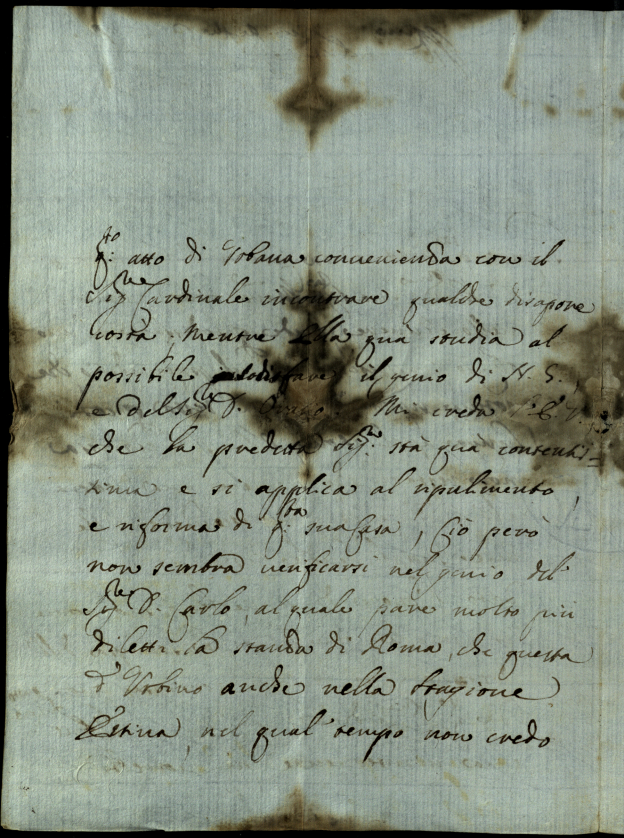 q:to atto di Urbana convenienza con il
Sig:re Cardinale incontrare qualche disapore
costà, mentre Ella quà studia al
possibile il genio di N. S.,
e del Sig:re D. Mi creda
che la predetta Sig:ra stà quà contentis=
sima e si applica al ripulimento,
e riforma di q:sta sua Casa, Ciò però
non sembra verificarsi nel genio del
Sig:re D. Carlo, al quale pare molto più
diletti la stanza di Roma, che questa
d'Urbino anche nella Stagione
Estiva, nel qual tempo non credo